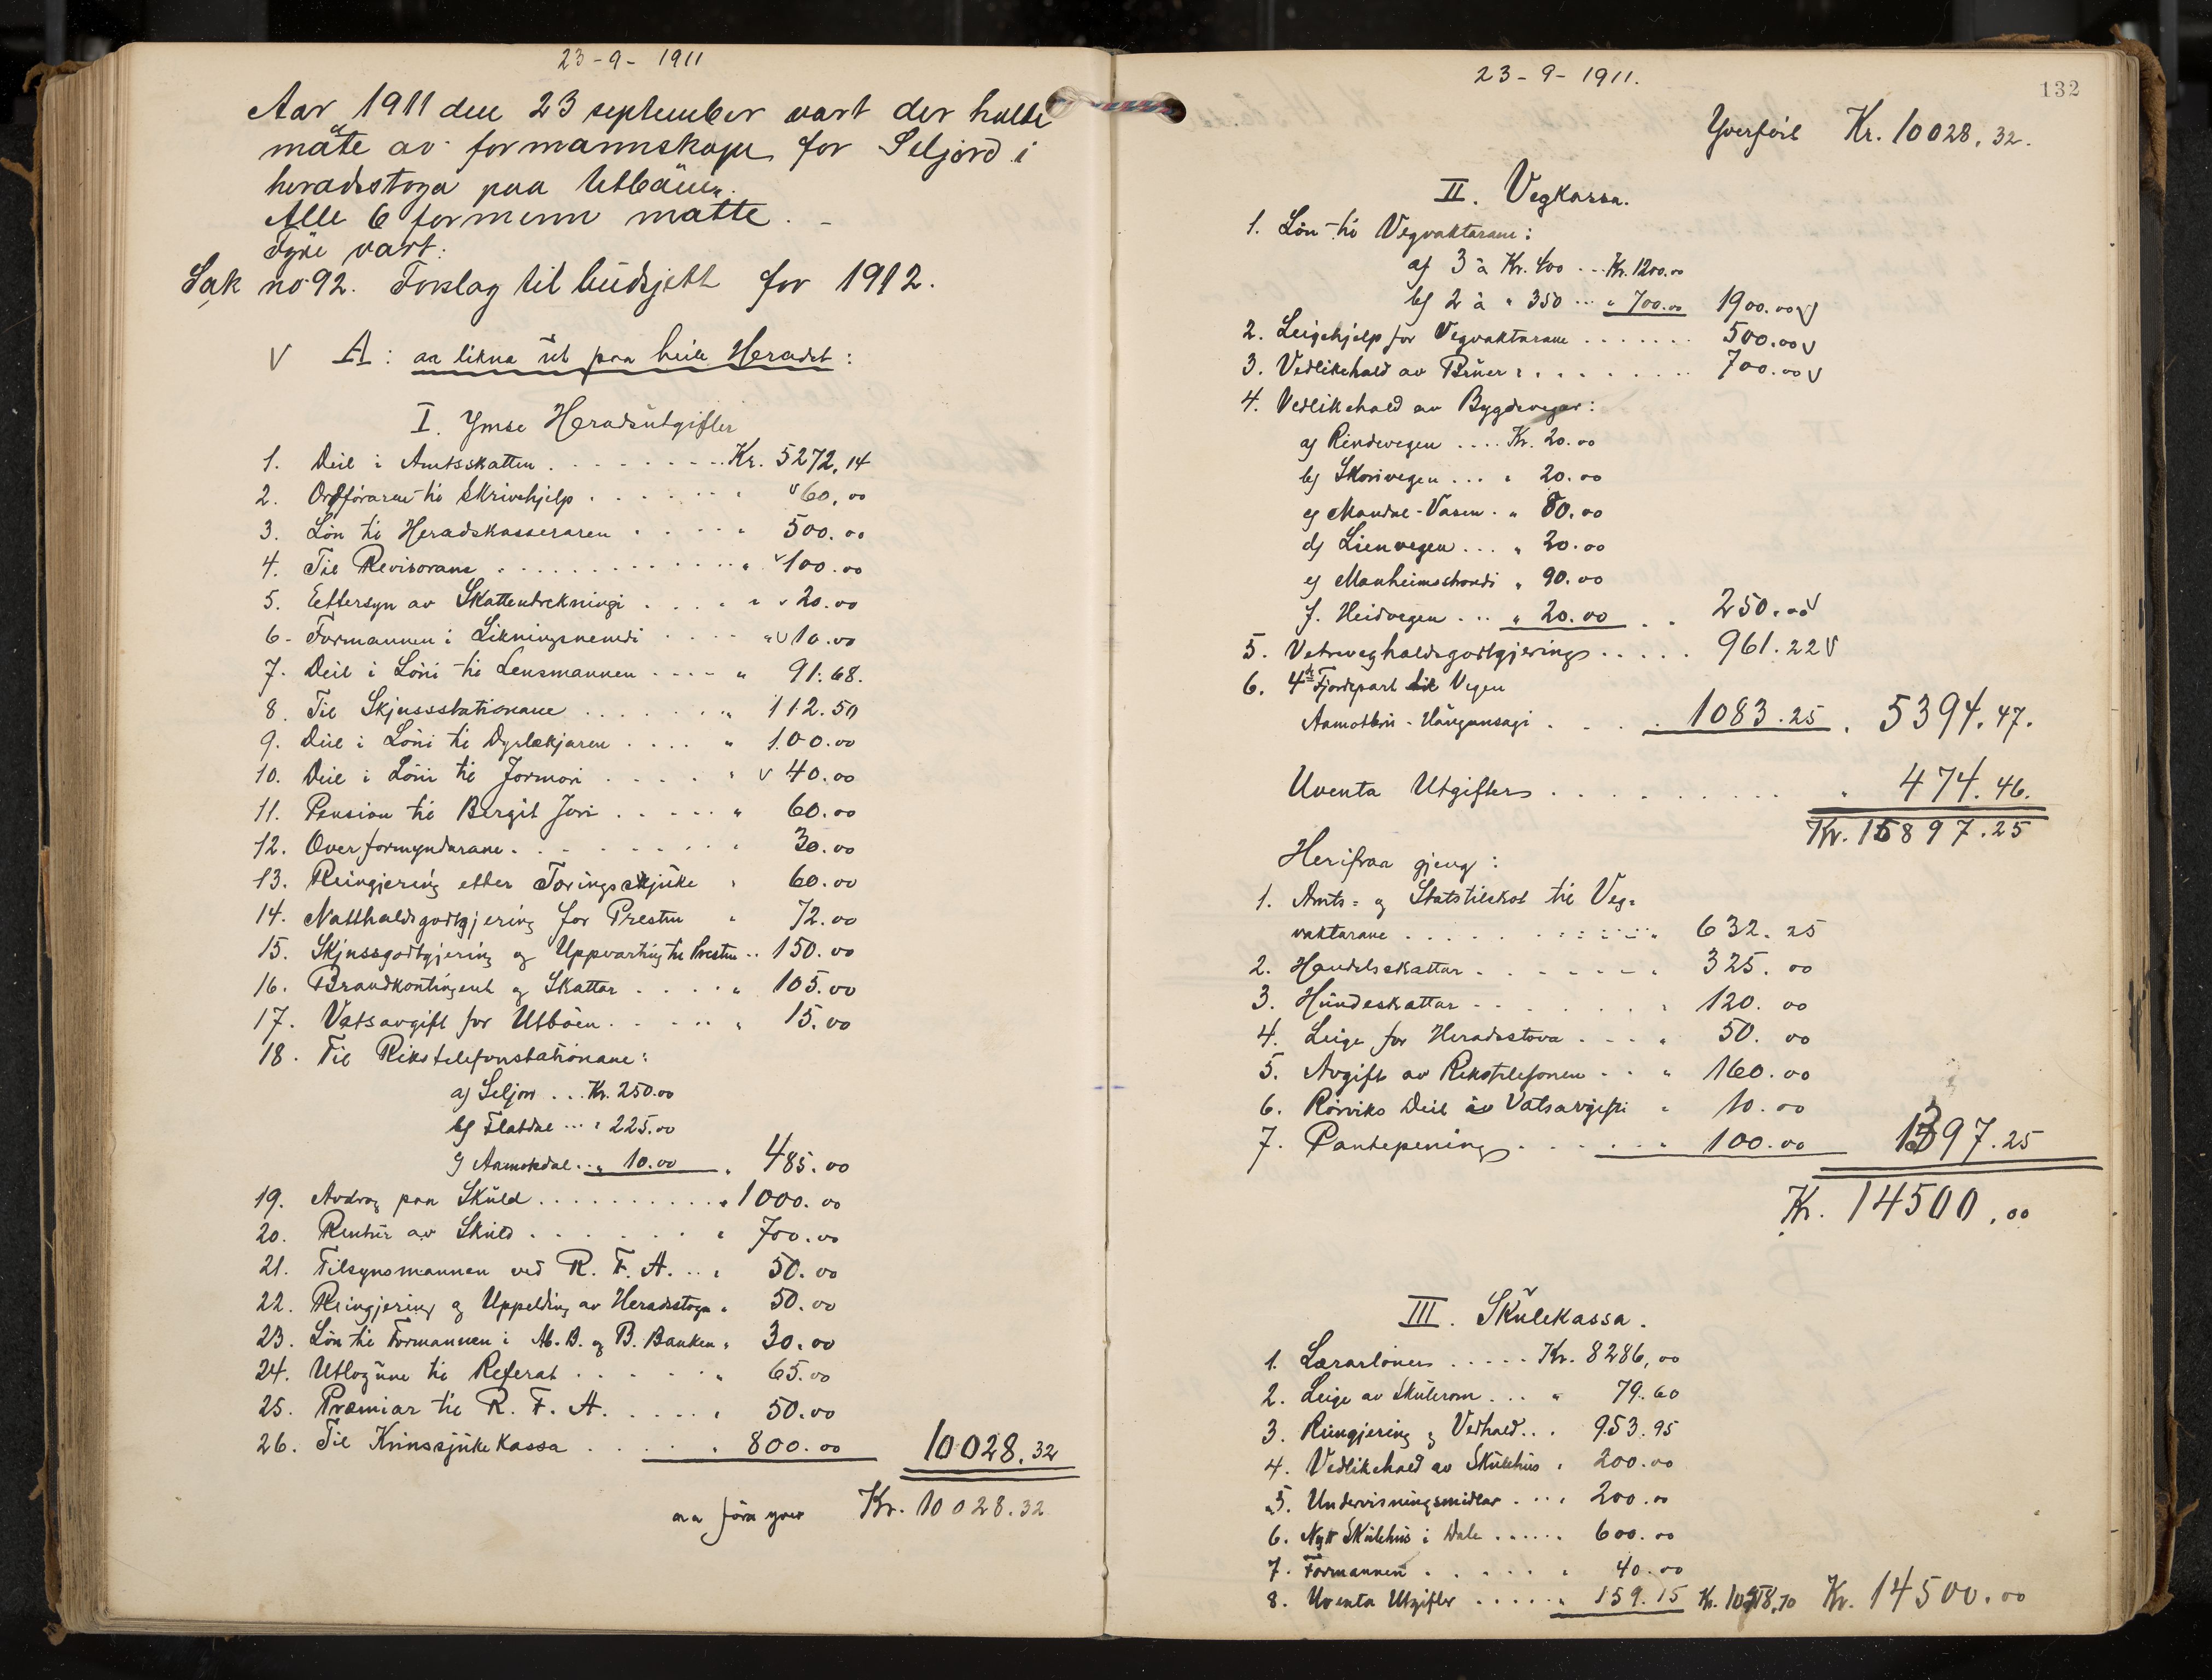 23-9- 1911
Aar 1911 den 23 september vart der halde
møte av formannskape for Seljord i
heradstoga paa Utbøen.
Alle 6 formenn møtte. -
Fyre vart:
Sak no 92. Forslag til budsjett for 1912.
V A: aa likna ut paa heile Heradet:
I. Ymse Heradsutgifter
1. Deil i Amtsskatten . . . . . . . . Kr. 5272,14
2. Ordføraren ti Skrivehjelp . . . . . . " 60,00
3. Løn ti Heradskasseraren . . . . " 500.00
4. Til Revisorane . . . . . . . . . . . " 100.00
5. Ettersyn av Skatteutrekningi . . . . " 20.00
6- Formannen i Likningsnemdi . . . . " 10.00
7. Deil i Løni ti Lensmannen . . . . " 91.68.
8. Til Skjussstationane . . . . . . . " 112.50
9. Deil i Løni ti Dyrlækjaren . . . . " 100.00
10. Deil i Løni til Jormori . . . . . " 40.00
11. Pension ti Bergit Jori . . . . . " 60.00
12. Overformyndarane . . . . . . . . " 30.00
13. Reingjering etter Tæringssjuke " 60.00
14. Natthaldsgodtgjering for Presten " 72.00
15. Skjussgodtgjering og Uppvarting ti Presten .. 150.00
16. Brandkontingent og Skattar . . . . " 105.00
17. Vatsavgift for Utbøen . . . . . " 15.00
18. Til Rikstelefonstationane:
a) Seljor . . . Kr. 250.00
b) Flatdal ... " 225.00
c) Aamotsdal . . " 10.00 " 485.00
19. Avdrag paa Skuld . . . . . . . . . . " 1000.00
20. Rentur av Skuld . . . . . . . " 700.00
21. Tilsynsmannen ved R. F. A. . . " 50.00
22. Reingjering og Uppelding av Heradstoga " 50.00
23. Løn til Formannen i A. B. og B. Banken " 30.00
24. Utlogune ti Referat . . . . . " 65.00
25. Præmiar til R. F. A. . . . . " 50.00
26. Til Krinssjukekassa . . . . . " 800.00 10028.32
aa føra yver Kr. 10028.32
23-9-1911.
132
Yverført Kr. 10028,32.
II. Vegkassa.
1. Løn ti Vegvaktarane:
a) 3 à Kr. 400 . . . Kr. 1200.00
b) 2 à " 350 ... " 700.00 1900.00 V
2. Leigehjelp for Vegvaktarane . . . . . . . 500.00 V
3. Vedlikehald av Bruer: . . . . . . . . 700.00 V
4. Vedlikehald av Bygdevegar:
a) Rindevegen . . . . Kr. 20.00
b) Skorivegen . . . " 20.00
c) Mandal-Vasen . " 80.00
d) Lienvegen . . . " 20.00
e) Manheimstrondi " 90.00
f. Heidvegen . . . " 20.00 . . 250.00 V
5. Vetreveghaldsgodtgjering . . . . . 961.22 V
6. 4de Fjordepart til Vegen
Aamotbru - Haugansagi . . . . 1083.25 . 5394.47.
Uventa Utgifter . . . . . . . . . . " 474.46.
Kr. 15897.25
Herifraa gjeng:
1. Amts- og Statstilskot til Veg-
vaktarane . . . . . . . . . . " 632.25
2. Handelsskattar . . . . . . " 325.00
3. Hundeskattar . . . . . . . " 120.00
4. Leige for Heradsstova . . . " 50.00
5. Avgift av Rikstelefonen . . " 160.00
6. Rørviks Deil av Vatsavgifti " 10.00
7. Pantepening . . . . . . " 100.00 1397.25
Kr. 14500.00
III. Skulekassa.
1. Lærarløner . . . . . Kr. 8286,00
2. Leige av Skulerom . . . " 79.60
3. Reingjering og Vedhald . . . 953.95
4. Vedlikehald av Skulehus " 200.00
5. Undervisningsmidlar . . . " 200.00
6. Nytt Skulehus i Dale . . . . . . 600.00
7. Formannen . . . . . . " 40.00
8. Uventa Utgifter . . . . . " 159.15 Kr. 10518,70 Kr. 14500.00